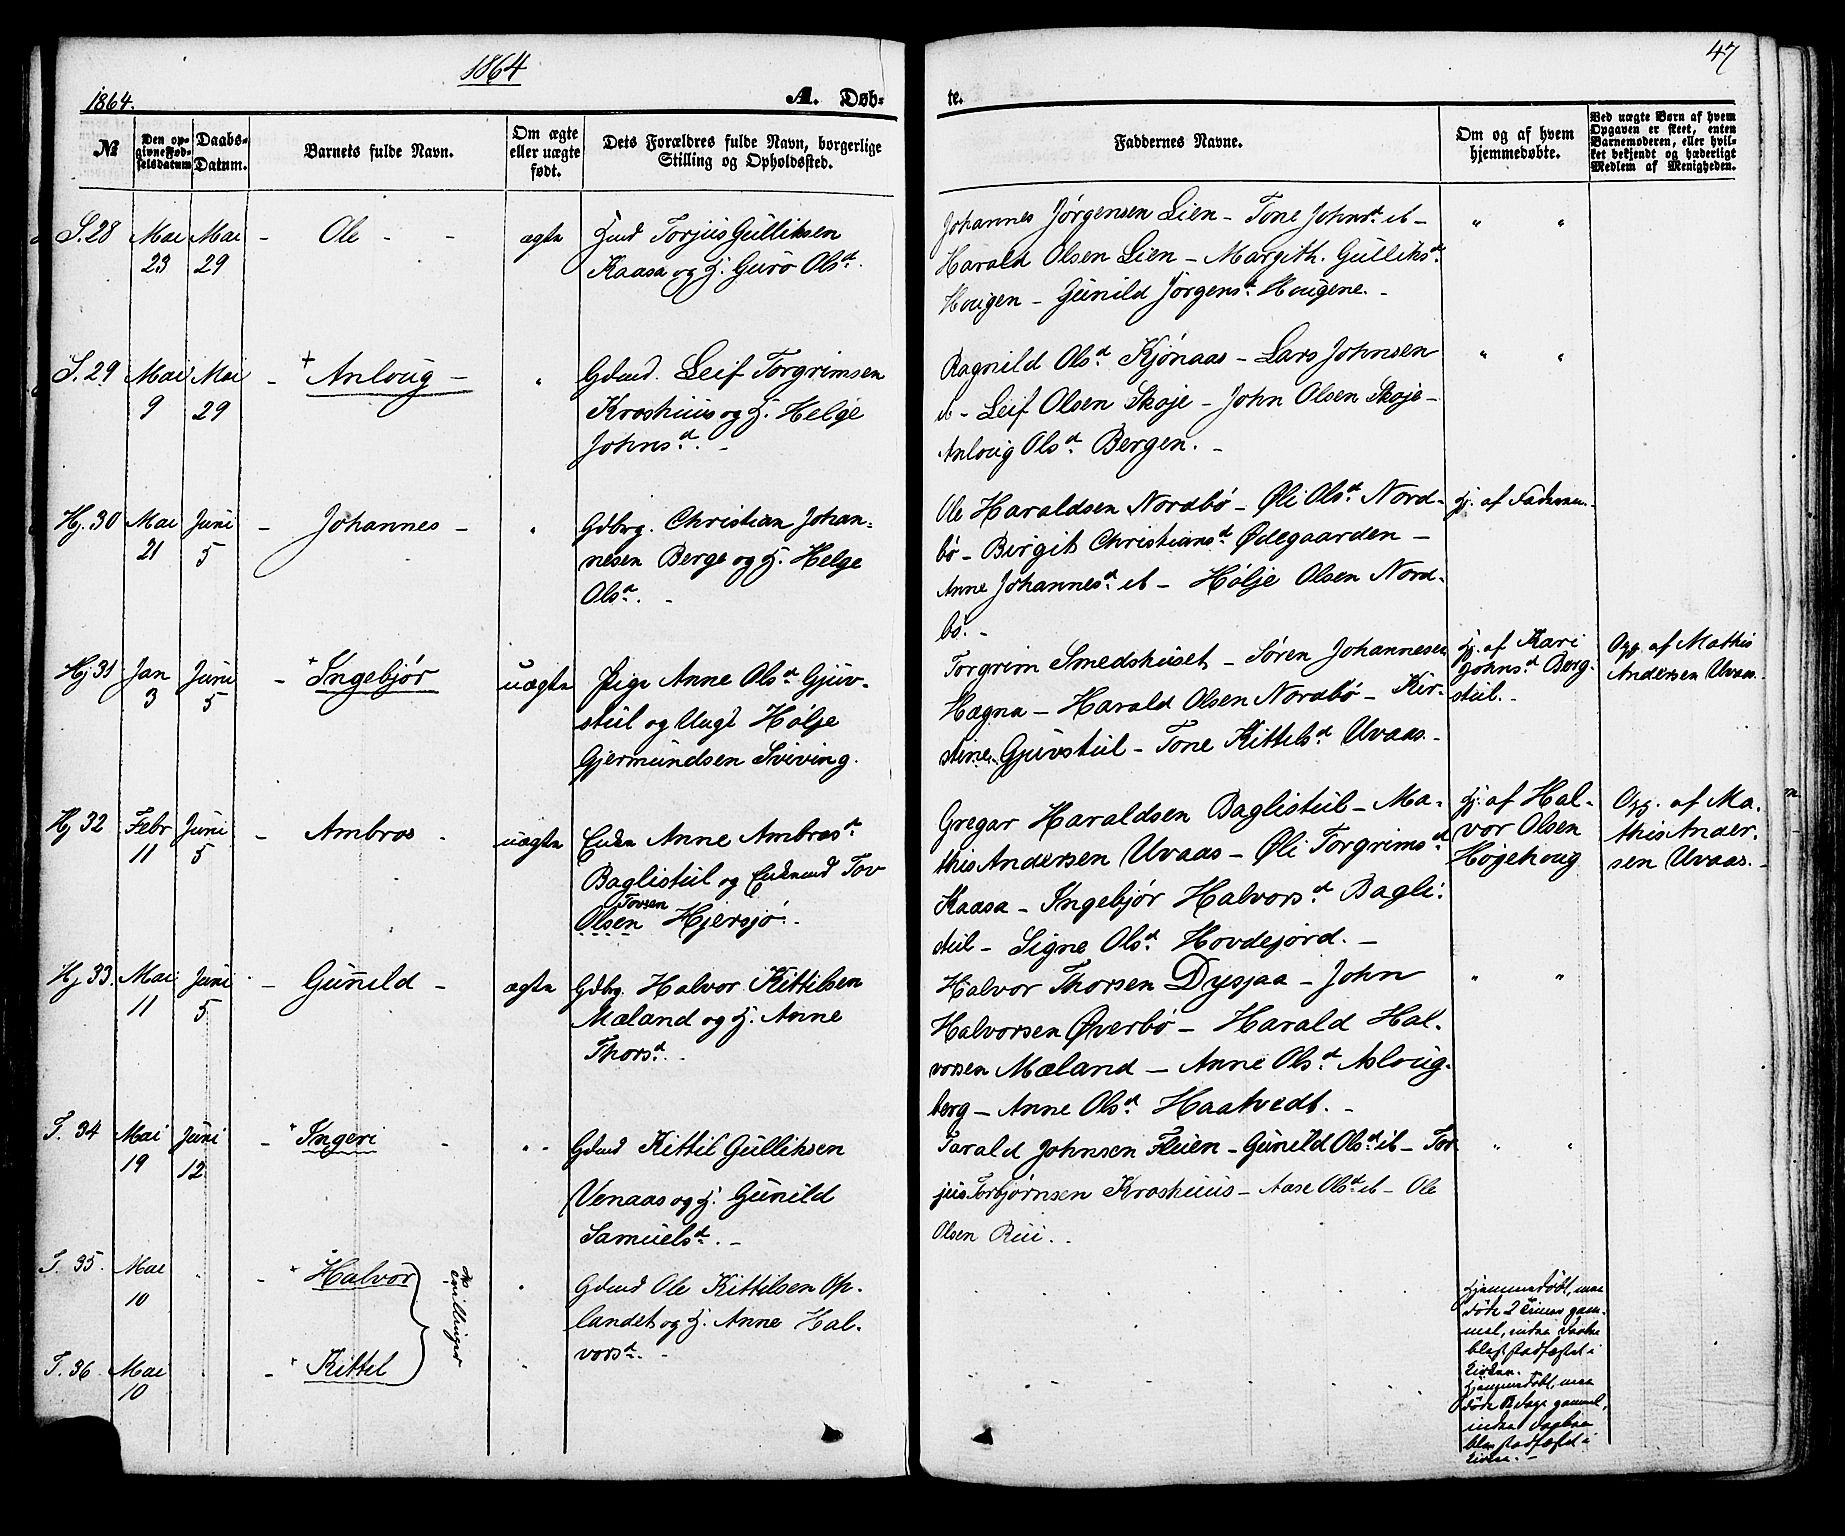 1864
47
1864.
A. Døb-
te.
№
Den op-
givne Fød-
selsdatum
Daabs-
Datum.
Barnets fulde Navn.
Om ægte
eller uægte
født.
Dets Forældres fulde Navn, borgerlige
Stilling og Opholdssted.
Faddernes Navne.
Om og af hvem
hjemmedøbte.
Ved uægte Børn af hvem
Opgaven er skeet, enten
Barnemoderen, eller hvil-
ket bekjendt og hæderligt
Medlem af Menigheden.
S. 28 Mai 23 Mai 29 - Ole - - ægte
Torjus Gulliksen
Kaasa og H. Guro Olsd.
Johannes Jørgensen Lien - Tone Johnsd. ib -
Harald Olsen Lien - Margith. Gulliksd.
Hougen - Gunild Jørgensd. Hougene. -
" "
S. 29 Mai 9 Mai 29 - + Anloug - "
Gdmd. Leif Torgrimsen
Kroshuus og H. Helge
Johnsd. -
Ragnild Olsd. Kjønaas - Lars Johnsen
ib - Leif Olsen Skoje - John Olsen Skoje -
Anloug Olsd. Bergen. -
" "
Hj. 30 Mai 21 Juni 5 - Johannes - "
Gdbrg. Christian Johan-
nesen Berge og H. Helge
Olsd. -
Ole Haraldsen Nordbø - Øli Olsd. Nord-
bø - Birgit Christiansd. Ødegaarden -
Anne Johannesd. ib - Hølje Olsen Nord-
bø. -
Hj. af Faderen.
Hj 31 Jan 3 Juni 5 - + Ingebjør uægte
Pige Anne Olsd. Gjuv-
stul og Ungk Hølje
Gjermundsen Sviving.
Torgrim Smedshuset - Søren Johannesen
Hægna - Harald Olsen Nordbø - Kir-
stine Gjuvstul - Tone Kittelsd. Uvaas. -
Hj. af Kari
Johnsd. Berg-
stul. -
Opg. af Mathis
Andersen Uvaas.
Hj 32 Febr 11 Juni 5 - Ambros - uægte
Enken Anne Ambrosd.
Baglistul og Enkemd Tov
Tovsen
Olsen Hjersjø. -
Gregar Haraldsen Baglistul - Ma-
this Andersen Uvaas - Øli Torgrimsd.
Kaasa - Ingebjør Halvorsd. Bagli-
stul - Signe Olsd. Hovdejord. -
Hj. af Hal-
vor Olsen
Høgehoug
Opg. af Ma-
this Ander-
sen Uvaas. -
Hj 33. Mai 11 Juni 5 - Gunild - ægte
Gdbrg. Halvor Kittilsen
Mæland og H. Anne
Thorsd. -
Halvor Thorsen Dysjaa - John
Halvorsen Øverbø - Harald Hal-
vorsen Mæland - Anne Olsd. Asloug-
berg - Anne Olsd. Haatvedt. -
" "
S. 34 Mai 19 Juni 12 - + Ingeri - "
Gdmd Kittil Gulliksen
Venaas og H. Gunild
Samuelsd. -
Tarald Johnsen Fleien - Gunild Olsd. ib - Tor-
jus Torbjørnsen Kroshuus - Aase Olsd. ib - Ole
Olsen Rui. -
" "
S. 35. Mai 10 " - + Halvor "
Tvillinger
Gdmd Ole Kittilsen Op-
landet og H. Anne Hal-
vorsd. -
Hjemmedøbt, men
døde 2 Timer gam-
mel, inden Daaben
blev stadfæstet i
Kirken.
S. 36. Mai 10 " - + Kittel "
Hjemmedøbt, men
døde
gammel,
inden Daaben
blev stadfæstet i
Kirken. -